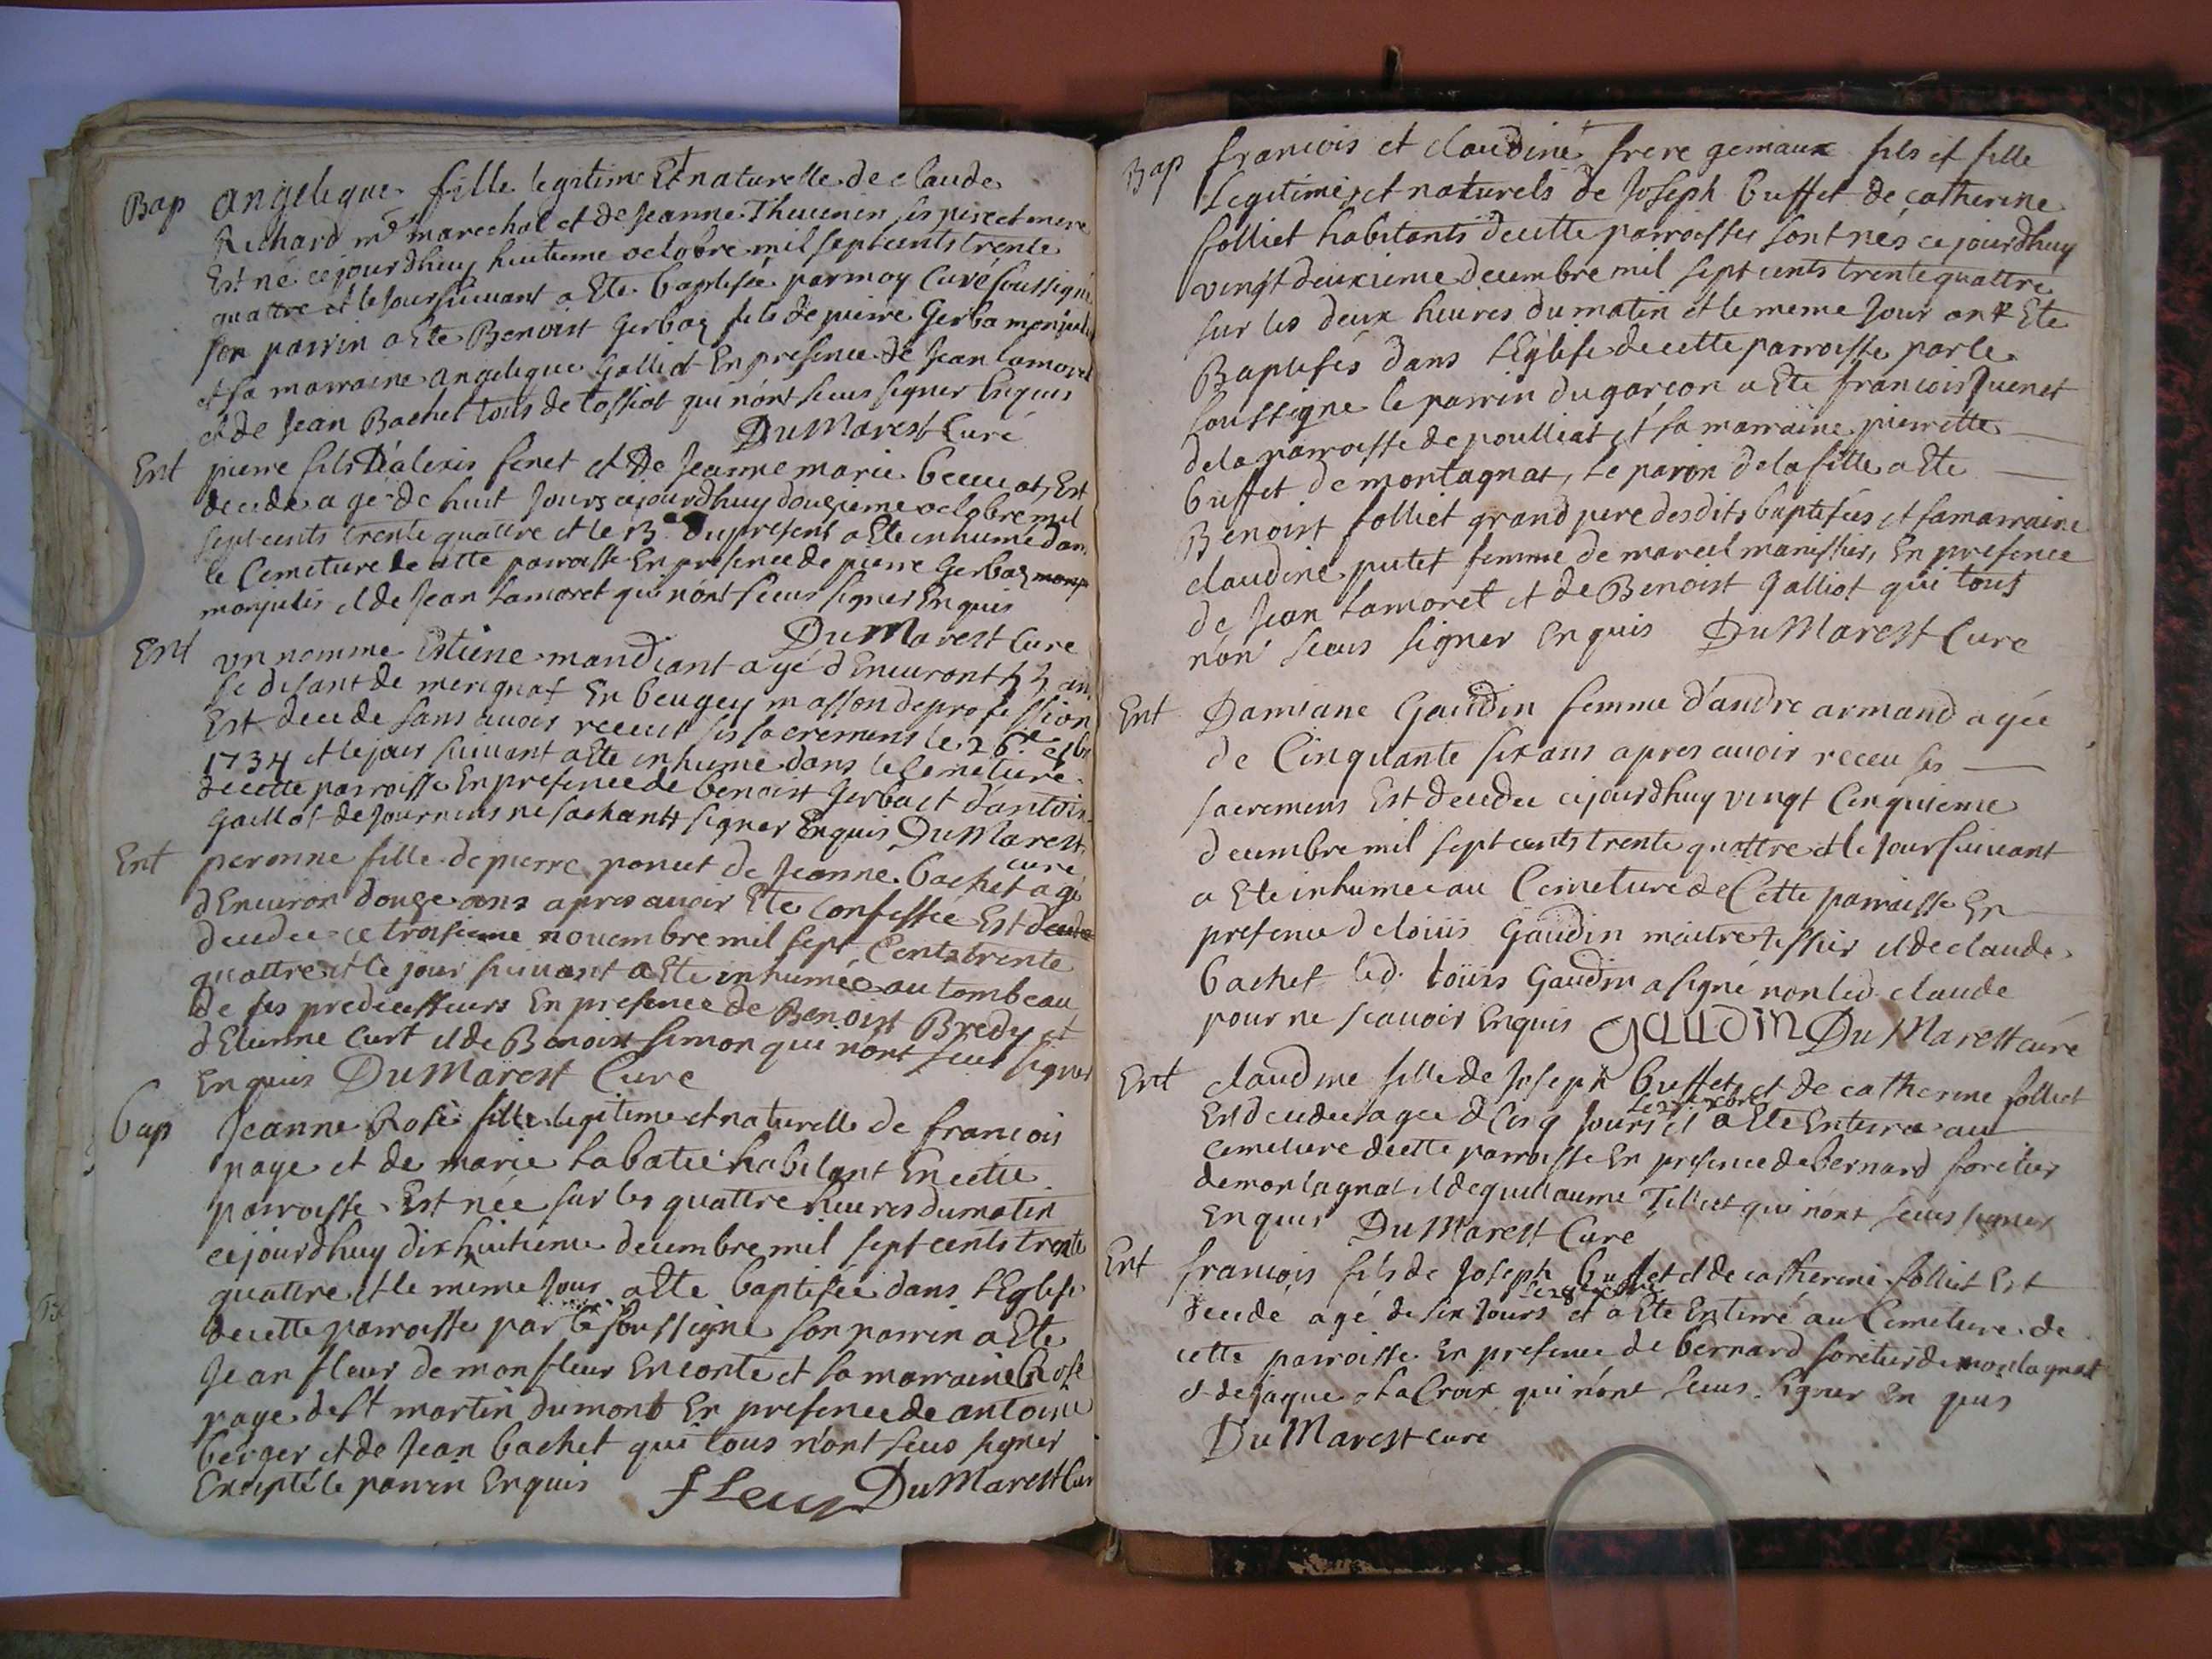 Bap angelique fille legitime Et naturelle de claude
Richard md marechal et de Jeanne Theuenin ses pere et mere
Est né cejourdhuy huitieme octobre mil sept cents trente
quattre et le jour suiuant a Ete baptisée par moy Curé soussigné
son parrin a Ete Benoist Gerbaz fils de pierre Gerba monjulis
et sa marraine angelique Galliot En presence de Jean lamoret
et de Jean Bachet tous de tossiat qui n'ont sceus signer Enquis
DuMarest Curé
Ent pierre fils D'alexis feret et De Jeanne marie beccat, Est
decedé agé de huit Jours cejourdhuy douzieme octobre mil
sept cents trente quattre et le 13e du present a Ete inhumé dans
le Cemetiere de cette parroisse En presence de pierre Gerbaz
monjulis et de Jean Lamoret qui n'ont sceus signer Enquis
DuMarest Curé
Ent un nomme Estiene mandiant agé d'Enuiront an
se disant de merignat En beugey masson de profession
Est decede sans auoir receut ses sacremens le 26e
1734 et le jour suiuant a Ete inhumé dans le Cemetiere
de cette parroisse En presence de benoist Gerba et d'antoin
Gaillot de Journens ne sachants signer Enquis DuMarest
curé
Ent peronne fille de pierre poncet de Jeanne bachet agé
d'Enuiron douze ans apres auoir Ete Confessée Est
decedée ce troisieme nouembre mil sept Cents trente
quattre et le jour suiuant a Ete inhumée au tombeau
de ses predecesseurs En presence de Benoist Bredy et
d'Etienne Curt et de Benoist Simon qui n'ont sceus signer
Enquis DuMarest Curé
bap Jeanne Rose fille legitime et naturelle de francois
paye et de marie Labatie habitant En cette
parroisse Est née sur les quattre heures du matin
cejourdhuy dix huitieme decembre mil sept cents trente
quattre et le meme Jour a Ete baptisée dans l'Eglise
de cette parroisse par le soussigné son parrin a Ete
Jean fleur de monfleur En conté et sa marraine Rose
paye de St martin dumont En presence de antoine
berger et de Jean bachet qui tous n'ont sceus signer
Excepté le parrin Enquis fLeur DuMarest Cur
Bap francois et claudine frere gemaux fils et fille
Legitimes et naturels de Joseph buffet de catherine
folliet habitants de cette parroisse sont nés cejourdhuy
vingt deuxieme decembre mil sept cents trente quattre
sur les deux heures du matin et le meme Jour ont Ete
Baptisés dans l'Eglise de cette parroisse par le
soussigne le parrin du garcon a Ete francois Juenet
de la parroisse de poulliat et sa marraine pierrette
buffet de montagnat, le parin de la fille a Ete
Benoist folliet grand pere desdits baptisées et sa marraine
claudine putet femme de marcel manissier, En presence
de Jean Lamoret et de Benoist Galliot qui tous
n'on sceus signer Enquis DuMarest Cure
Ent Damiane Gaudin femme d'andre armand agée
de Cinquante six ans apres auoir receu ses
sacremens Est decedee cejourdhuy vingt Cinquieme
decembre mil sept cents trente quattre et le Jour suiuant
a Ete inhumee au Cemetiere de Cette parroisse En
presence de loüis Gaudin maitre tissier et de claude
bachet led. loüis Gaudin a signé non led. claude
pour ne scauoir Enquis GAUDIN DuMarest curé
Ent claudine fille de Joseph buffet et de catherine folliet
le 27 xbre
Est decedée agee de Cinq Jours et a Ete Enterre au
cemetiere de cette parroisse En presence de bernard foretier
de montagnat et de guillaume Tilliet qui n'ont sceus signer
Enquis DuMarest Curé
Ent francois fils de Joseph buffet et de catherine folliet Est
le 28 xbre
decedé agé de six Jours et a Ete Enterré au Cemetiere de
cette parroisse En presence de bernard foretier de montagnat
et de jaque La Croix qui n'ont sceus signer En quis
DuMarest curé